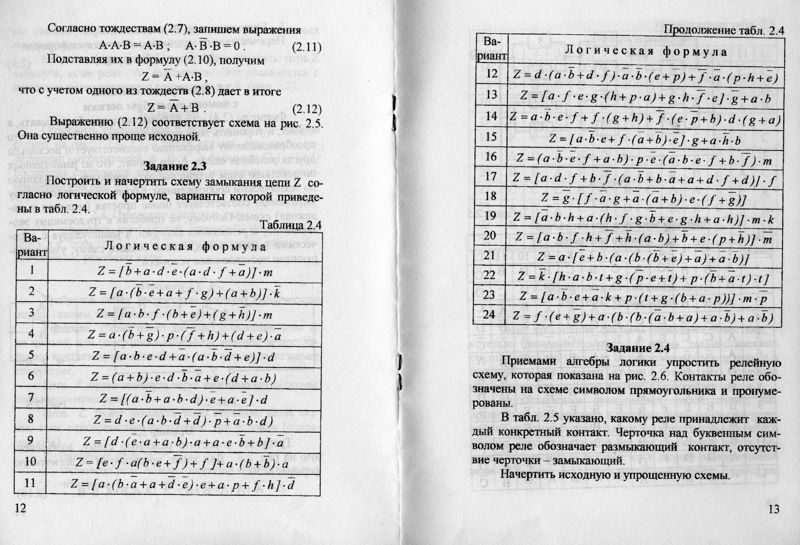 Согласно тождествам (2.7), запишем выражения
A·A·B = A·B ; A·B̅·B = 0 . (2.11)
Подставляя их в формулу (2.10), получим
Z = A̅ +A·B ,
что с учетом одного из тождеств (2.8) дает в итоге
Z = A̅ + B . (2.12)
Выражению (2.12) соответствует схема на рис. 2.5.
Она существенно проще исходной.
Задание 2.3
Построить и начертить схему замыкания цепи Z со-
гласно логической формуле, варианты которой приведе-
ны в табл. 2.4.
Таблица 2.4
Ва-
риант
Логическая формула
1 Z = [b̅ + a·d̅·e·(a·d·f + a̅)]·m
2 Z = [a·(b̅·e + a + f·g) + (a + b)]·k̅
3 Z = [a·b·f·(b + e) + (g + h)]·m
4 Z = a·(b + g̅)·p·(f + h) + (d + e)·a̅
5 Z = [a·b·e·d + a̅·(a·b·d̅ + e)]·d
6 Z = (a + b)·e·d·b̅·a̅ + e·(d + a·b)
7 Z = [(a·b̅ + a·b·d)·e + a·e̅]·d
8 Z = d·e·(a·b·d̅ + d)·p̅ + a·b·d)
9 Z = [d·(e·a + a·b)·a + a·e·b̅ + b]·a̅
10 Z = [e·f·a(b·e + f̅) + f] + a·(b + b̅)·a
11 Z = [a·(b·a̅ + a + d̅·e)·e + a·p + f·h]·d̅
12
Продолжение табл. 2.4
Ва-
риант
Логическая формула
12 Z = d·(a·b̅ + d·f)·a̅·b·(e + p) + f̅·a·(p·h + e̅)
13 Z = [a·f·e·g·(h + p·a) + g·h·f·e]·g̅ + a·b
14 Z = a·b̅·e·f + f·(g + h) + f̅·(e·p + b)·d·(g + a)
15 Z = [a·b̅·e + f·(a + b)·e̅]·g + a·h·b
16 Z = (a·b·e·f + a·b)·p·e·(a·b·e·f + b·f)·m
17 Z = [a·d·f + b·f̅·(a·b̅ + b·a + a + d·f + d)]·f
18 Z = g̅·[f·a·g + a·(a + b)·e·(f + g)]
19 Z = [a·b·h + a·(h·f·g·b̅ + e·g·h + a·h)]·m·k
20 Z = [a·b·f·h + f + h·(a·b) + b + e·(p + h)]·m
21 Z = a·[e + b·(a·(b·(b + e) + a) + a·b)]
22 Z = k̅·[h·a·b·t + g·(p·e + t) + p·(b + a·t)·t]
23 Z = [a·b·e + a·k + p·(t + g·(b + a·p))]·m·p̅
24 Z = f·(e + g̅) + a·(b·(b·(a̅·b + a) + a·b̅) + a·b)
Задание 2.4
Приемами алгебры логики упростить релейную
схему, которая показана на рис. 2.6. Контакты реле обо-
значены на схеме символом прямоугольника и пронуме-
рованы.
В табл. 2.5 указано, какому реле принадлежит каж-
дый конкретный контакт. Черточка над буквенным сим-
волом реле обозначает размыкающий контакт, отсутст-
вие черточки – замыкающий.
Начертить исходную и упрощенную схемы.
13